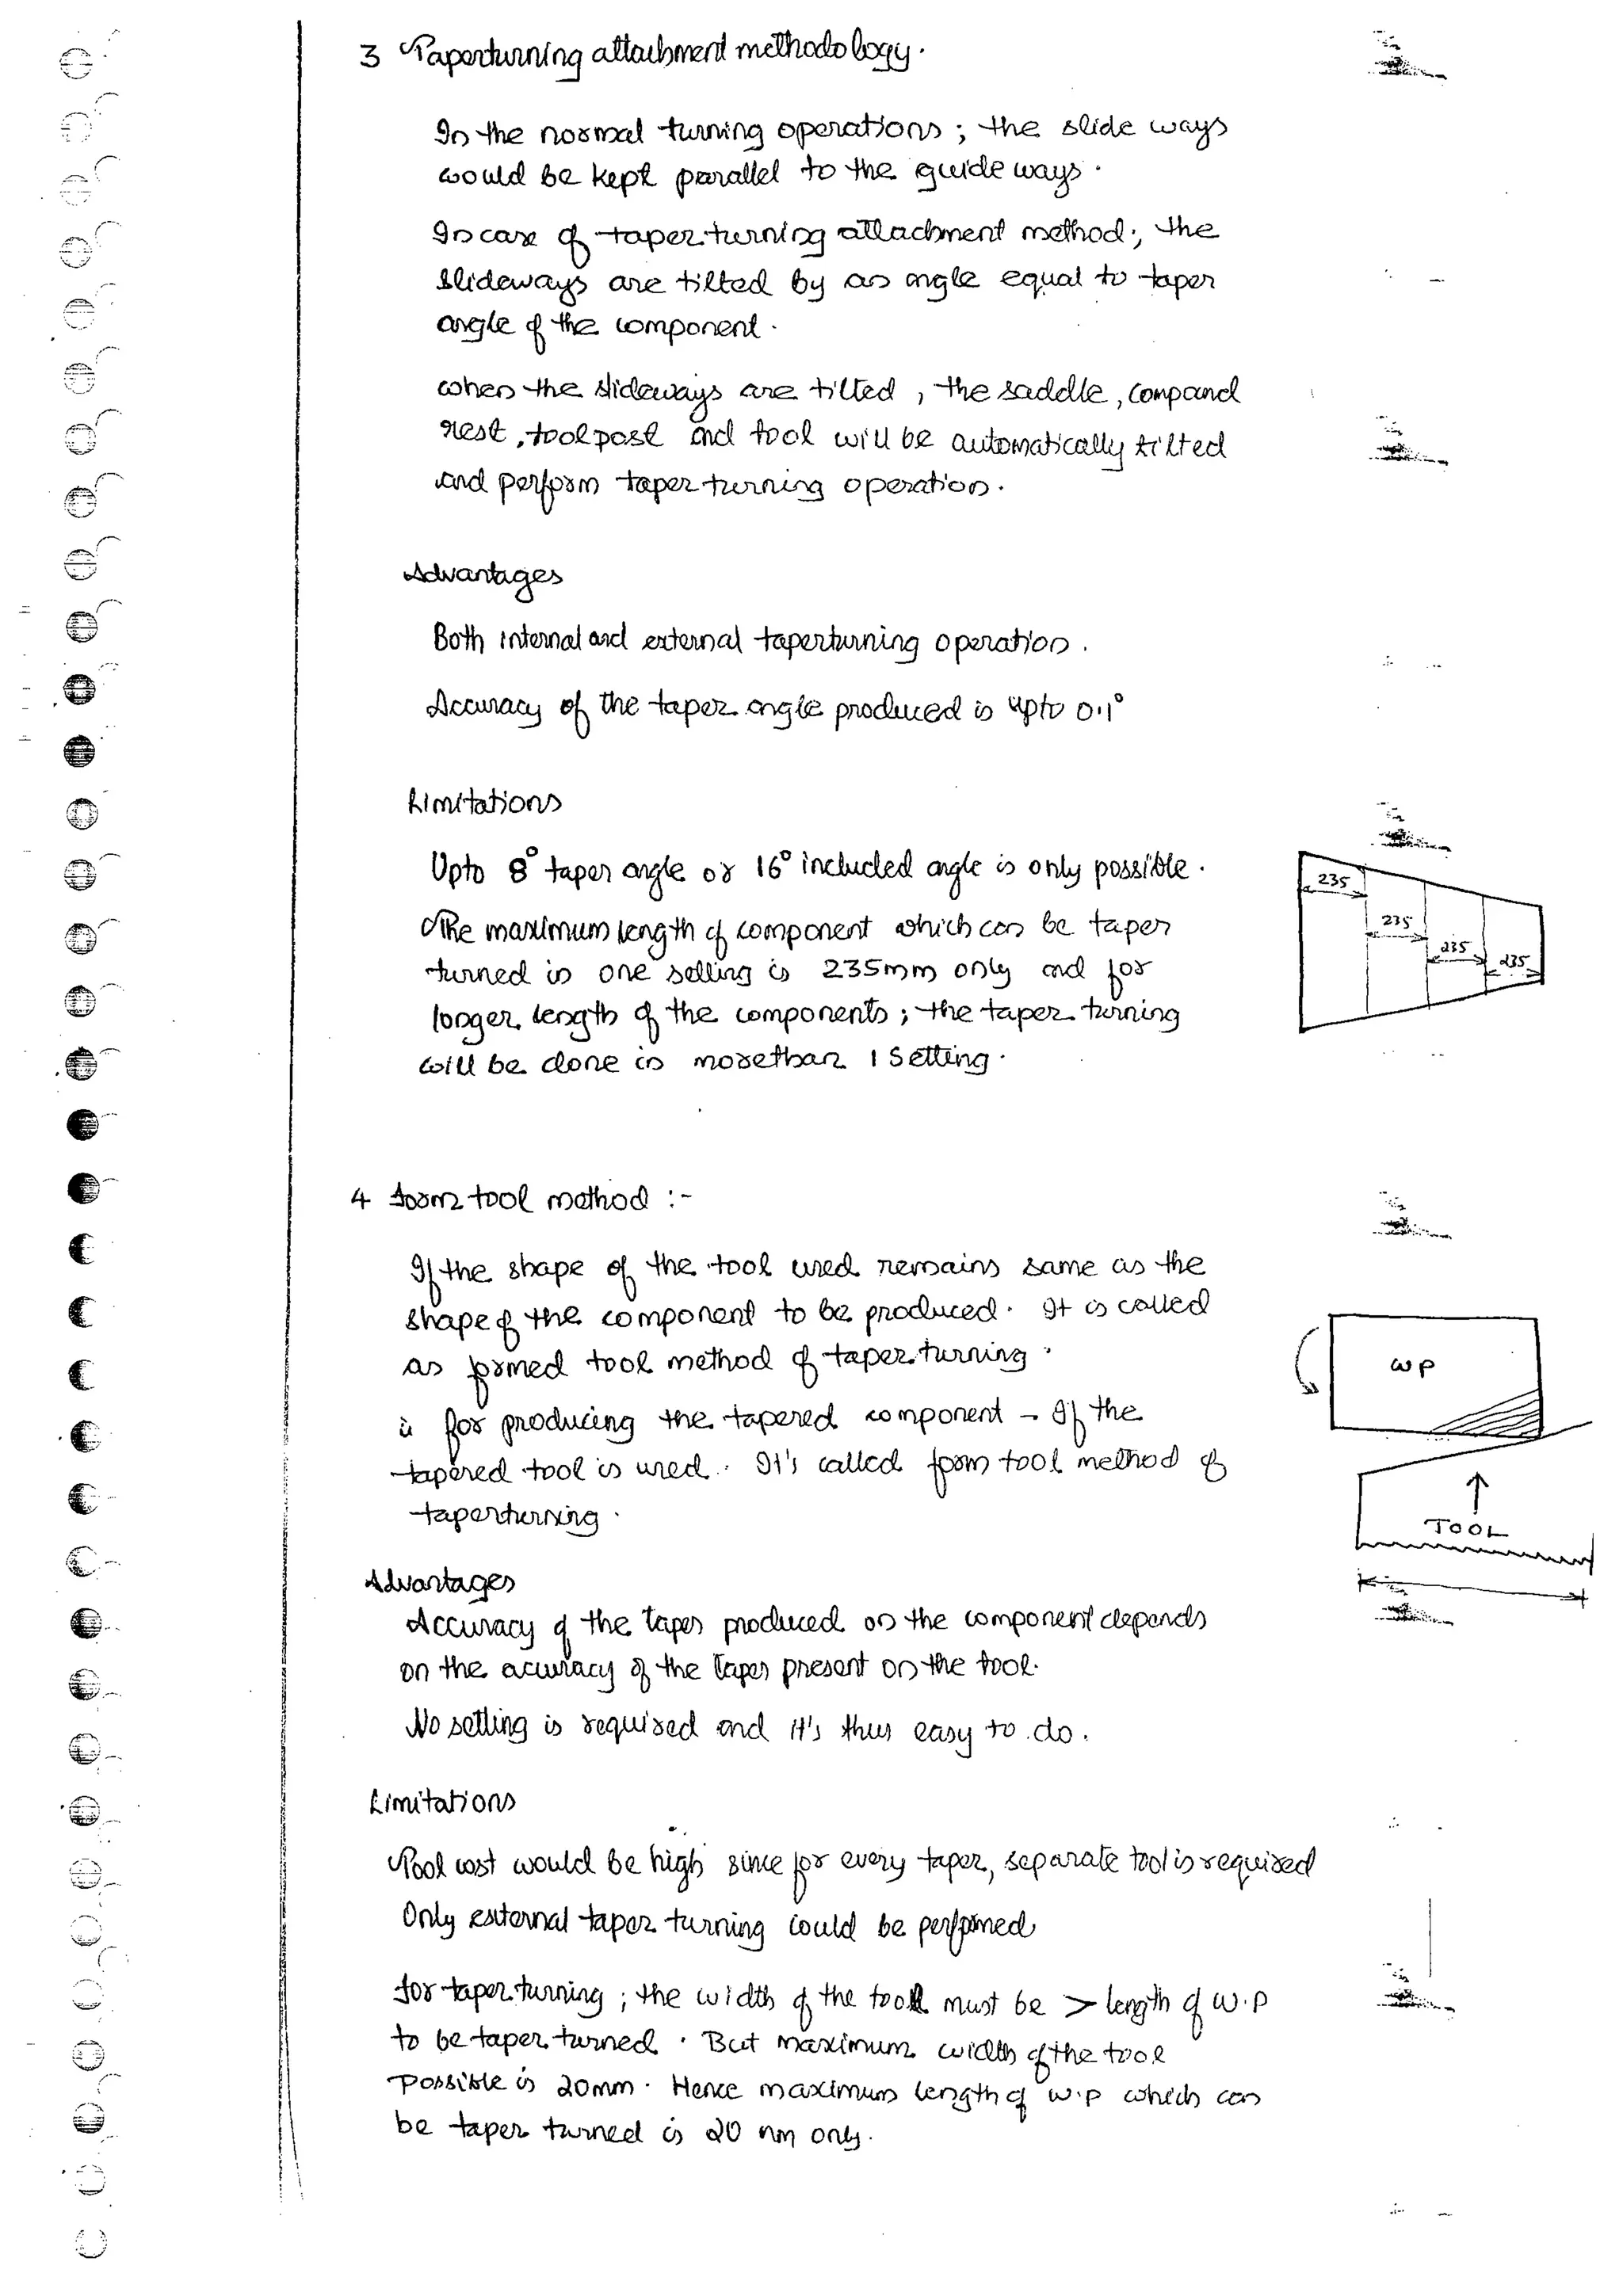 3 Taperturning attachment methodology.
In the normal turning operations ; the slide ways
would be kept parallel to the guide ways.
In case of taper turning attachment method; the
slideways are tilted by an angle equal to taper
angle of the component.
when the slideways are tilted, the saddle, compound
rest, toolpost and tool will be automatically tilted
and perform taper turning operation.
Advantages
Both internal and external taperturning operation.
Accuracy of the taper angle produced is upto 0.1°
Limitations
Upto 8° taper angle or 16° included angle is only possible.
The maximum length of component which can be taper
turned in one setting is 235mm only and for
longer length of the components; the taper turning
will be done in morethan 1 setting.
235
235
235
235
4 form tool method :-
If the shape of the tool used remains same as the
shape of the component to be produced. It is called
as formed tool method of taper turning.
ii for producing the tapered component - If the
tapered tool is used. It's called form tool method of
taperturning.
WP
TOOL
Advantages
Accuracy of the taper produced on the component depends
on the accuracy of the taper present on the tool.
No setting is required and it's thus easy to do.
Limitations
Tool cost would be high since for every taper, separate tool is required
Only external taper turning could be performed
for taper turning ; the width of the tool must be > length of W.P
to be taper turned. But maximum width of the tool
possible is 20mm. Hence maximum length of W.P which can
be taper turned is 20 mm only.